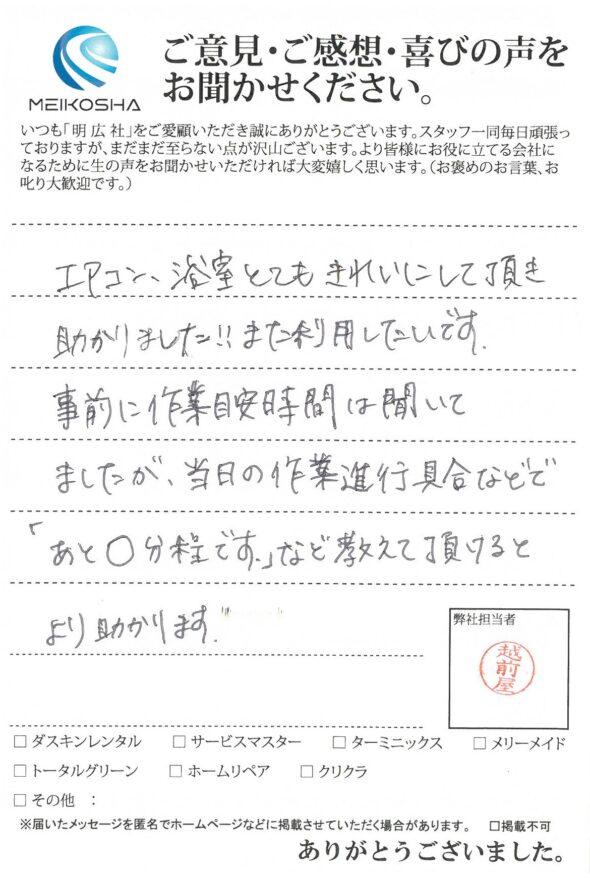 MEIKOSHA
ご意見・ご感想・喜びの声を
お聞かせください。
いつも「明広社」をご愛顧いただき誠にありがとうございます。スタッフ一同毎日頑張っ
ておりますが、まだまだ至らない点が沢山ございます。より皆様にお役に立てる会社に
なるために生の声をお聞かせいただければ大変嬉しく思います。（お褒めのお言葉、お
叱り大歓迎です。）
エアコン、浴室とてもきれいにして頂き
助かりました!!また利用したいです。
事前に作業目安時間は聞いて
ましたが、当日の作業進行具合などで
「あと〇分程です。」など教えて頂けると
より助かります。
弊社担当者
越前屋
□ ダスキンレンタル □ サービスマスター □ ターミニックス □ メリーメイド
□ トータルグリーン □ ホームリペア □ クリクラ
□ その他 ：
※届いたメッセージを匿名でホームページなどに掲載させていただく場合があります。 □掲載不可
ありがとうございました。